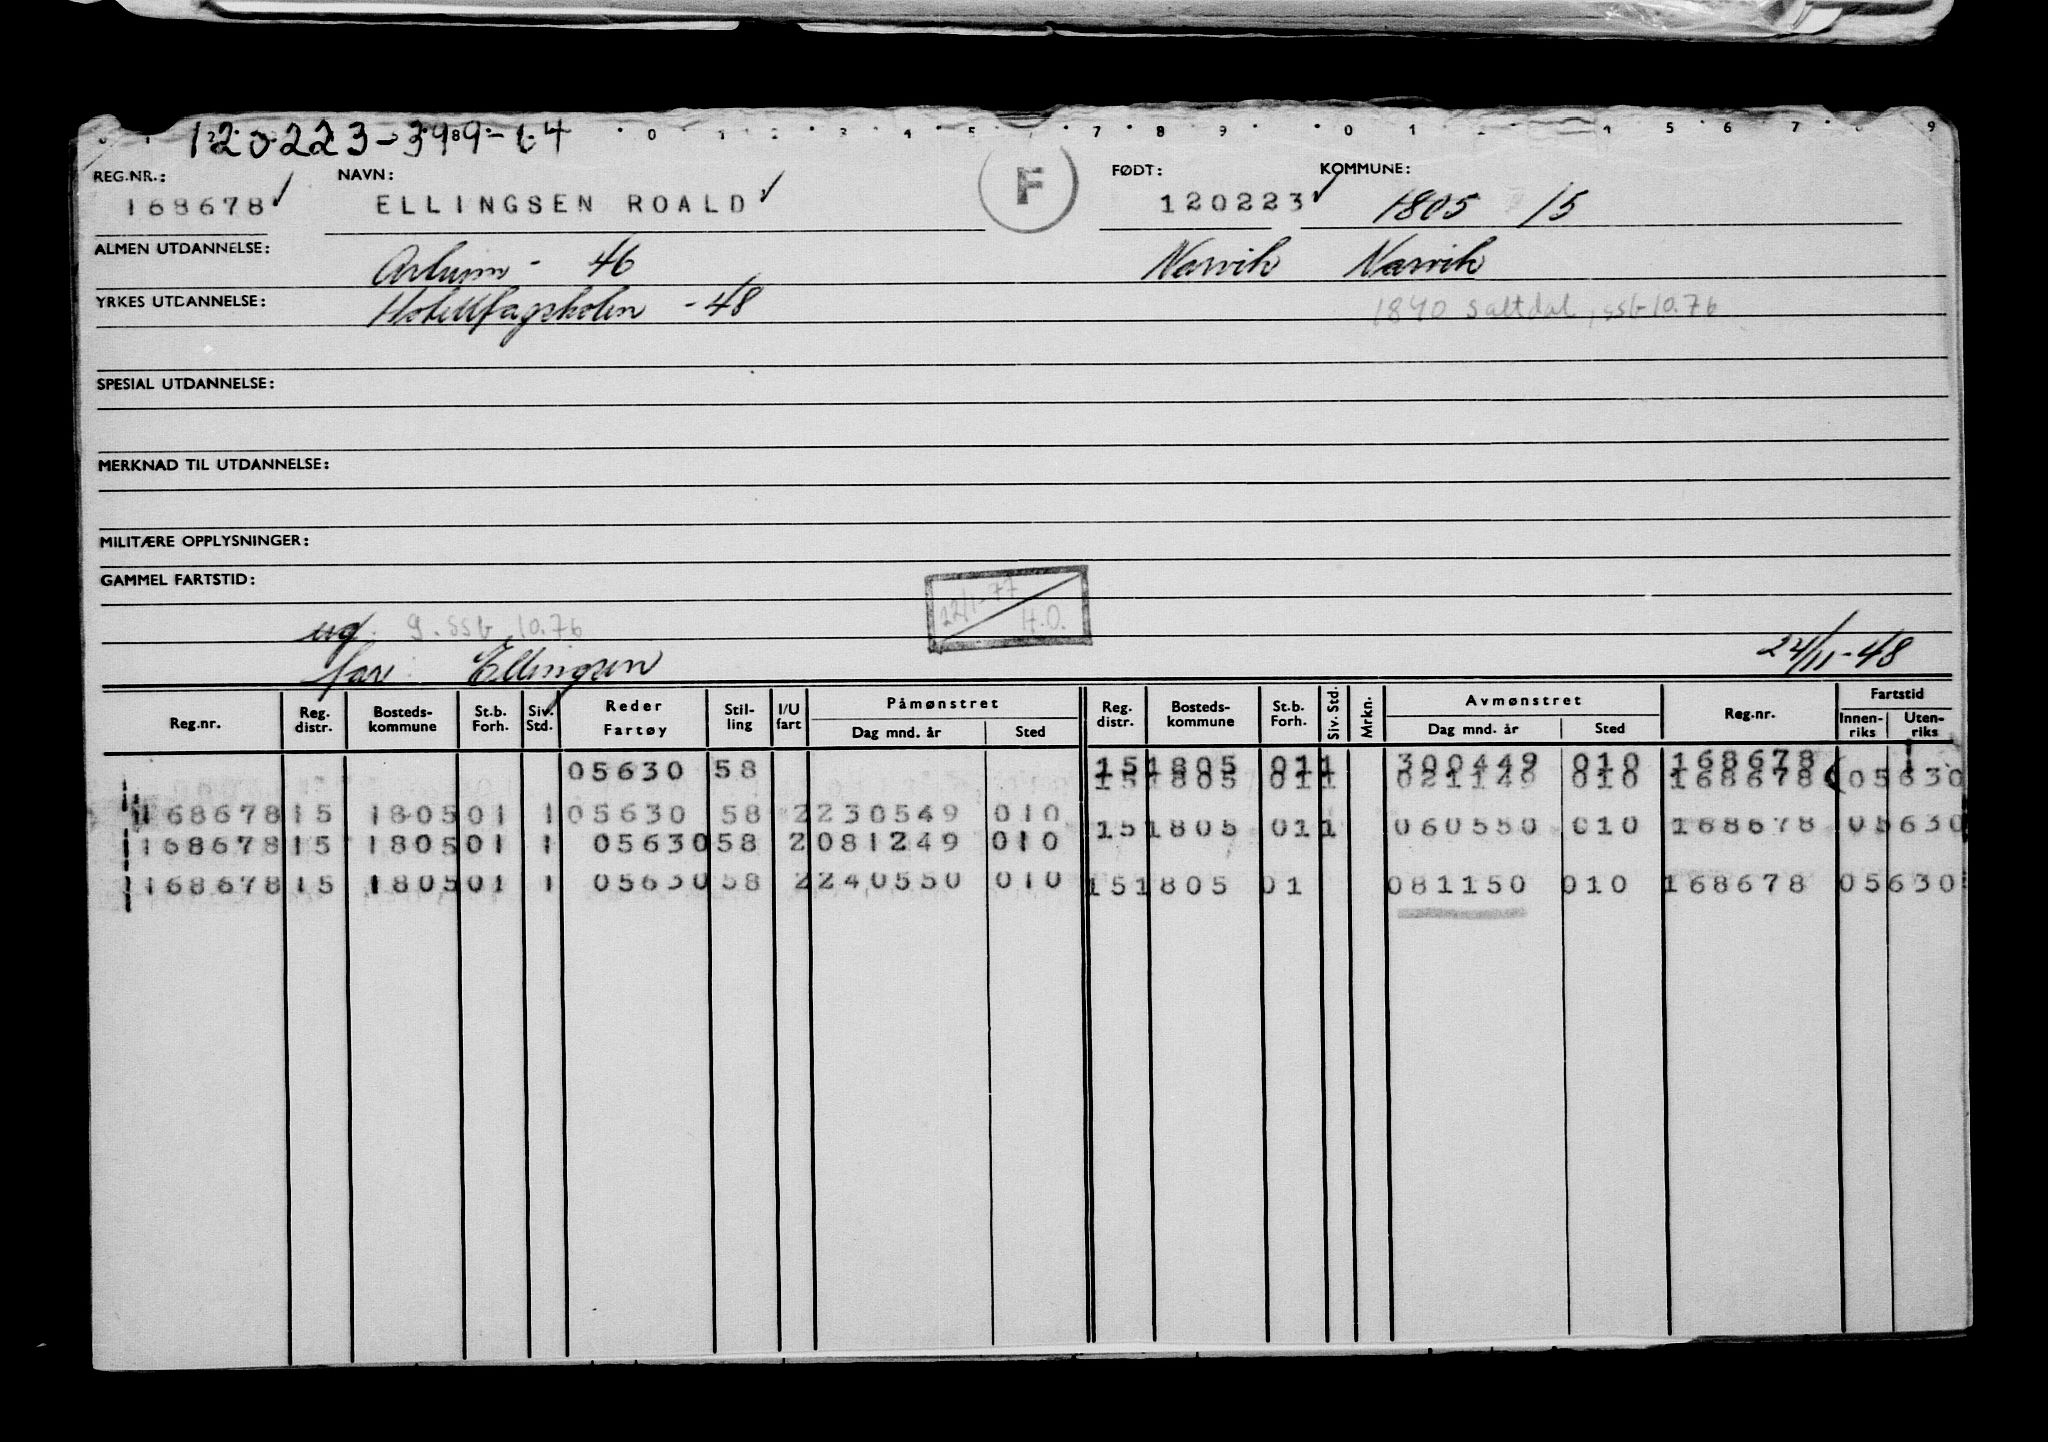 120223-39989-14
REG.NR.: NAVN: F FØDT: KOMMUNE:
168678 ✓ ELLINGSEN ROALD ✓ 120223 ✓ 1805 15
ALMEN UTDANNELSE: - 46 Narvik Narvik
YRKES UTDANNELSE: Hotellfagskolen - 48
1840 Saltdal, ssb 10.76
SPESIAL UTDANNELSE:
MERKNAD TIL UTDANNELSE:
MILITÆRE OPPLYSNINGER:
GAMMEL FARTSTID:
22/1-77 H.O.
ug. g. ssb 10.76
far: Ellingsen 24/11-48
Reg.nr. Reg. distr. Bosteds-kommune St.b. Forh. Siv. Std. Reder Fartøy Stil-ling I/U fart Påmønstret Dag mnd. år Sted Reg. distr. Bosteds-kommune St.b. Forh. Siv. Std. Mrkn. Avmønstret Dag mnd. år Sted Reg.nr. Fartstid Innen-riks Uten-riks
05630 58 15 1805 01 1 300449 010 168678
15 1805 01 1 021149 010 168678 05630
168678 15 1805 01 1 05630 58 2 230549 010
15 1805 01 1 060550 010 168678 05630
168678 15 1805 01 1 05630 58 2 081249 010
168678 15 1805 01 1 05630 58 2 240550 010 15 1805 01 081150 010 168678 05630